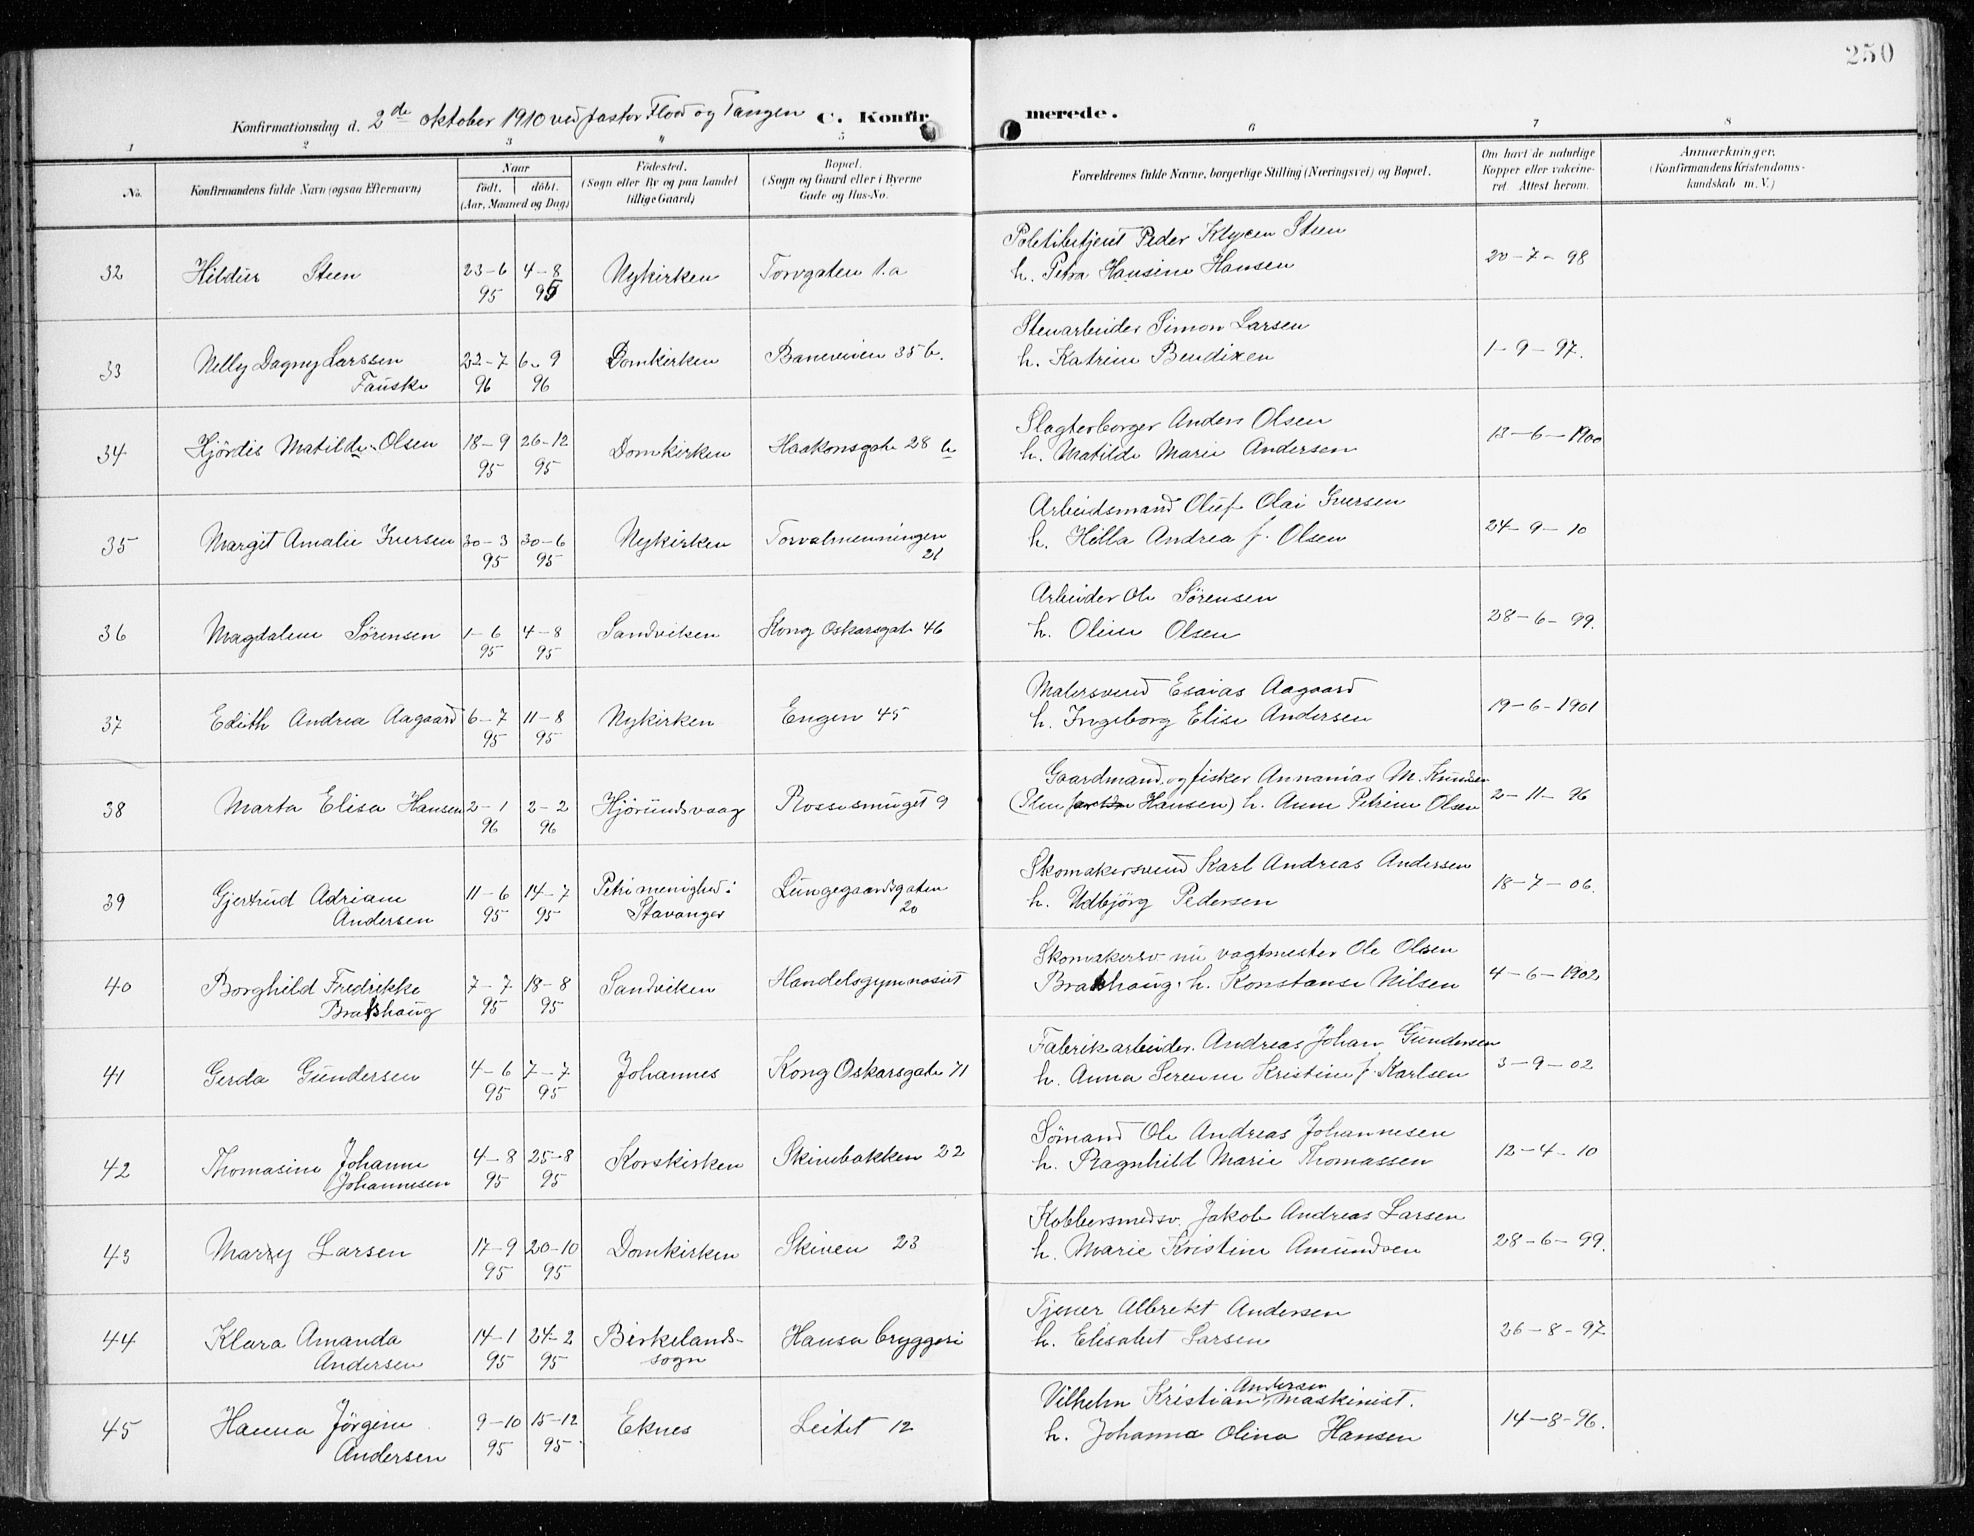 250
Konfirmationsdag d. 2de oktober 1910 ved pastor Flood og Tangen C. Konfirmerede.
1 2 3 4 5 6 7 8
No. Konfirmandens fulde Navn (ogsaa Efternavn) Naar födt. döbt. (Aar, Maaned og Dag) Födested. (Sogn eller By og paa Landet tillige Gaard) Bopæl. (Sogn og Gaard eller i Byerne Gade og Hus-No. Forældrenes fulde Navne, borgerlige Stilling (Næringsvei) og Bopæl. Om havt de naturlige Kopper eller vakcineret. Attest herom. Anmærkninger. (Konfirmandens Kristendomskundskab m. V.)
Politibetjent Peder Steen
32 Hildur Steen 23-6 4-8 Nykirken Torvgaten 1.a h. Petra Hansine Hansen 20-7-98
95 95
Stenarbeider Simon Larsen
33 Nelly Dagny Larssen 22-7 6-9 Domkirken Baneveien 35 b. h. Katrine Bendixen 1-9-97.
Fauske 96 96
Slagterborger Anders Olsen
34 Hjördis Matilde Olsen 18-9 26-12 Domkirken Haakonsgate 28 b h. Matilde Marie Andersen 13-6-1900
95 95
Arbeidsmand Oluf Olai Iversen
35 Margit Amalie Iversen 30-3 30-6 Nykirken Torvalmenningen h. Hilla Andrea f. Olsen 24-9-10
95 95 21
Arbeider Ole Sörensen
36 Magdalene Sörensen 1-6 4-8 Sandviken Kong Oskarsgate 46 h. Oline Olsen 28-6-99.
95 95
Malersvend Esaias Aagaard
37 Edith Andrea Aagaard 6-7 11-8 Nykirken Engen 45 h. Ingeborg Elise Andersen 19-6-1901
95 95
Gaardmand og fisker Annanias M. Knudsen
38 Marta Elisa Hansen 2-1 2-2 Hjörundsvaag Rossesmuget 9 Hansen) h. Anne Petrine Olsen 2-11-96
96 96
Skomakersvend Karl Andreas Andersen
39 Gjertrud Adriane 11-6 14-7 Petri menighed i Lungegaardsgaten h. Udbjörg Pedersen 18-7-06.
Andersen 95 95 Stavanger 20
Skomakersv nu vagtmester Ole Olsen
40 Borghild Fredrikke 7-7 18-8 Sandviken Handelsgymnasiet Brakhaug. h. Konstanse Nilsen 4-6-1902
Brakhaug 95 95
Fabrikarbeider. Andreas Johan Gundersen
41 Gerda Gundersen 4-6 7-7 Johannes Kong Oskarsgate 71 h. Anna Serenne Kristine f. Karlsen 3-9-02
95 95
Sömand Ole Andreas Johannesen
42 Thomasine Johanne 4-8 25-8 Korskirken Skivebakken 22 h. Ragnhild Marie Thomassen 12-4-10
Johannesen 95 95
Kobbersmedsv. Jakob Andreas Larsen
43 Marry Larsen 17-9 20-10 Domkirken Skiven 23 h. Marie Kristine Amundsen 28-6-99.
95 95
Tjener Albrekt Andersen
44 Klara Amanda 14-1 24-2 Birkelands- Hansa bryggeri h. Elisabet Larsen 26-8-97
Andersen 95 95 sogn
Vilhelm Kristian Andersen, maskinist.
45 Hanna Jörgine 9-10 15-12 Eknes Leitet 12 h. Johanna Olina Hansen 14-8-96.
Andersen 95 95